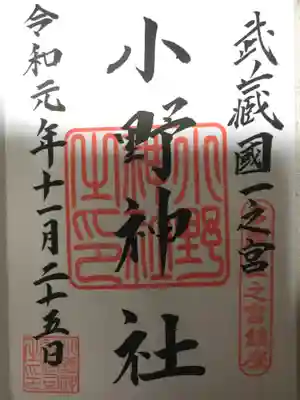 武蔵國一之宮
小野神社
令和元年十一月二十五日
小野神社之印